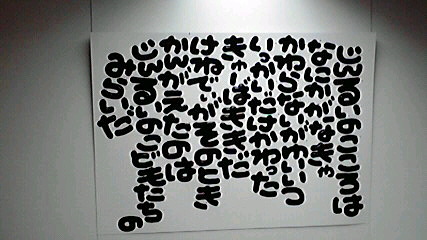 じんるいのこころは
なにかがなきゃ
かわらないがゆいいつ
いっかいだけかわった
きゅーばききだ
けねでぃがそのとき
かんがえたのは
じんるいのこどもたちの
みらいだ